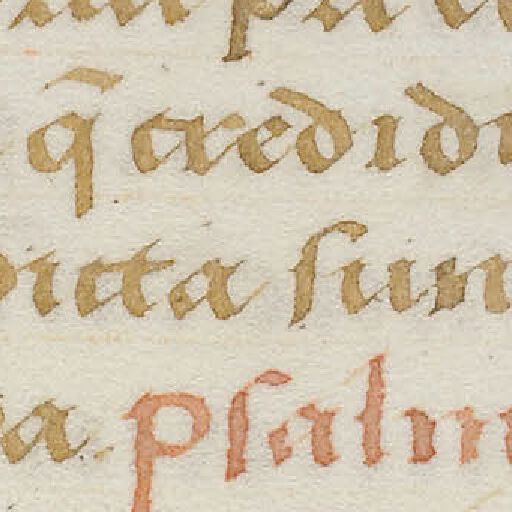 q̄ credidi
dicta sun
a. psalm